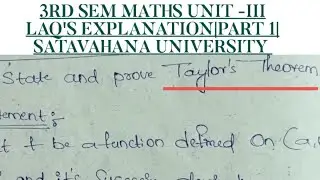 3RD SEM MATHS UNIT -III
LAQ'S EXPLANATION|PART 1|
SATAVAHANA UNIVERSITY
State and prove Taylor's Theorem
ement:
t f be a function defined on (a,
and it's